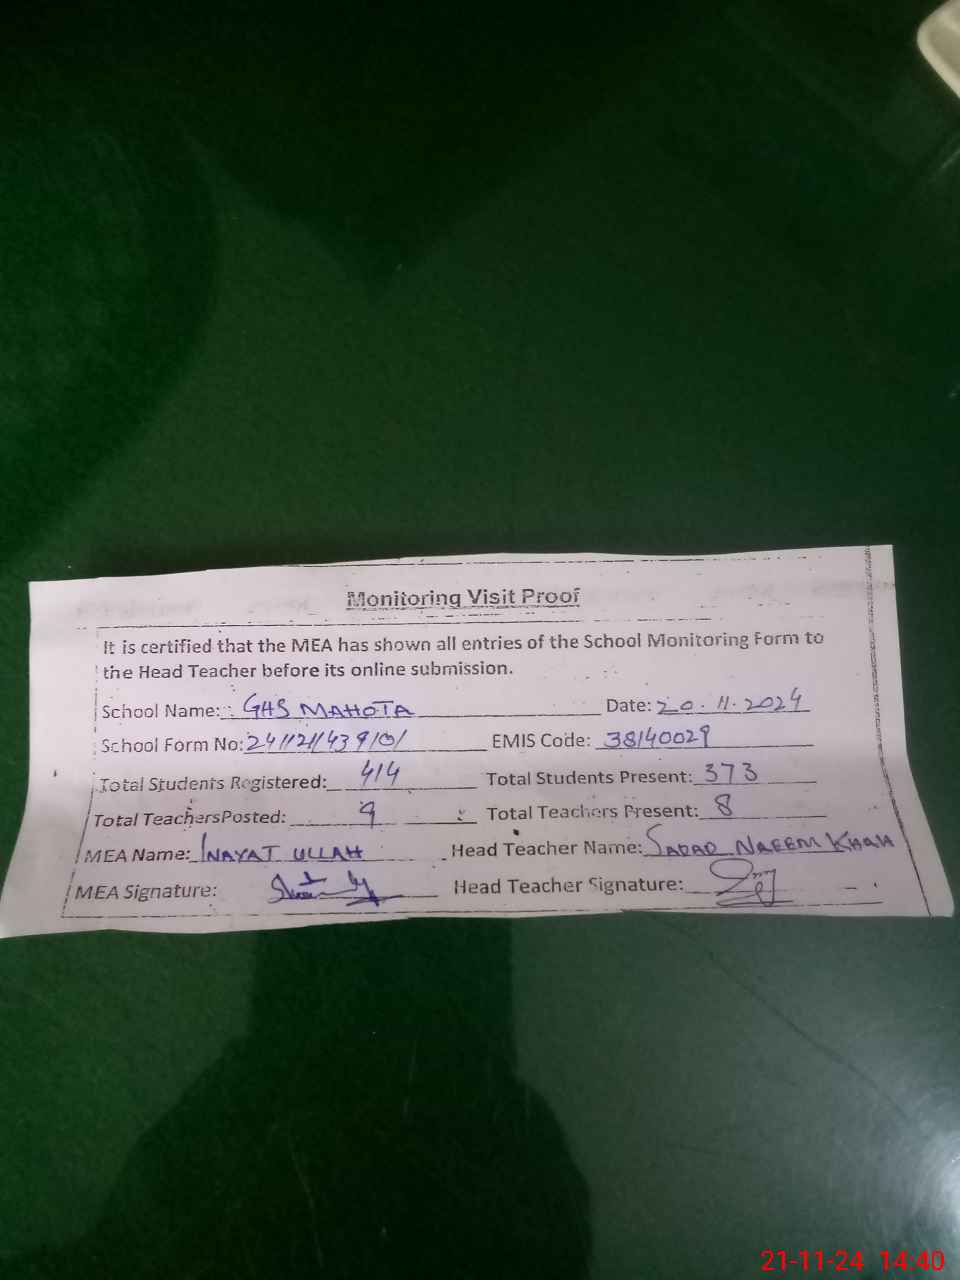 Monitoring Visit Proof
It is certified that the MEA has shown all entries of the School Monitoring Form to
the Head Teacher before its online submission.
School Name: GHS MAHOTA Date: 20.11.2024
School Form No: EMIS Code: 38140029
Total Students Registered: 414 Total Students Present: 373
Total TeachersPosted: 9 Total Teachers Present: 8
MEA Name: INAYAT ULLAH Head Teacher Name: NAEEM KHAN
MEA Signature: Head Teacher Signature:
21-11-24 14:40